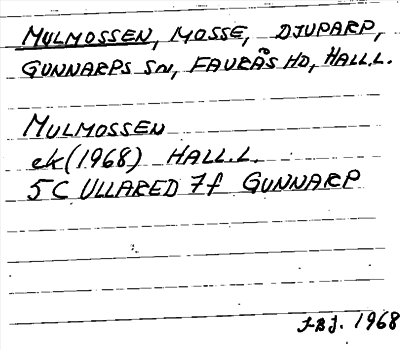 MULMOSSEN, MOSSE, DJUPARP,
GUNNARPS SN, FAURÅS HD, HALL.L.
MULMOSSEN
ek(1968) HALL.L.
5C ULLARED 7f GUNNARP
1968